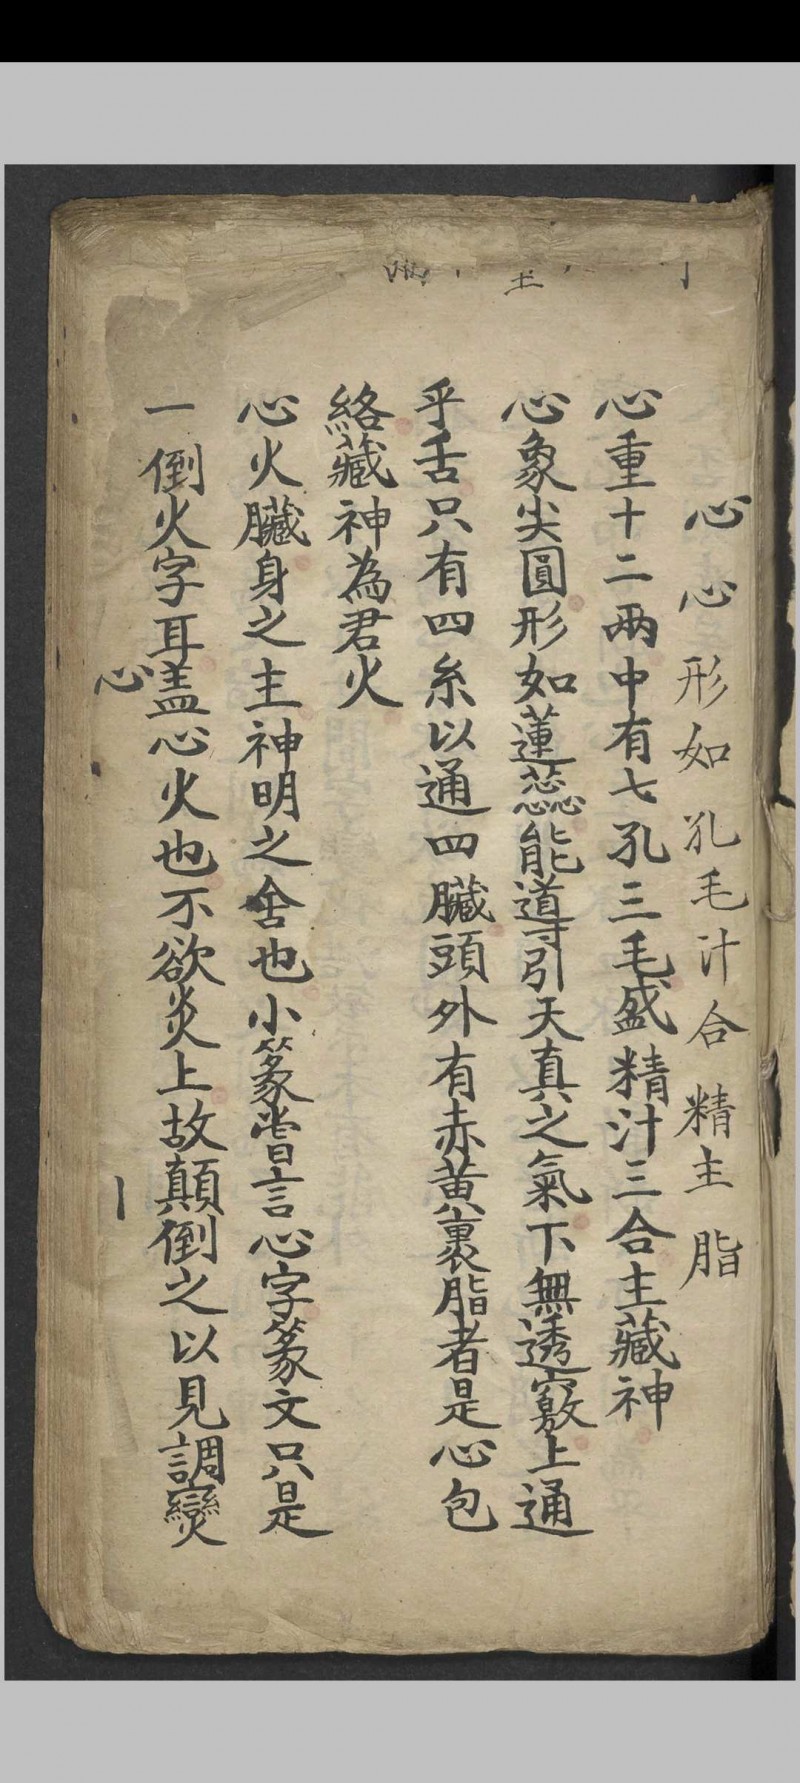 心心形如孔毛汁合精主脂
心重十二兩中有七孔三毛盛精汁三合主藏神
心象尖圓形如蓮蕊能導引天真之氣下無透竅上通
乎舌只有四系以通四臟頭外有赤黃裹脂者是心包
絡藏神為君火
心火臟身之主神明之舍也小篆嘗言心字篆文只是
一倒火字耳盖心火也不欲炎上故顛倒之以見調燮
心